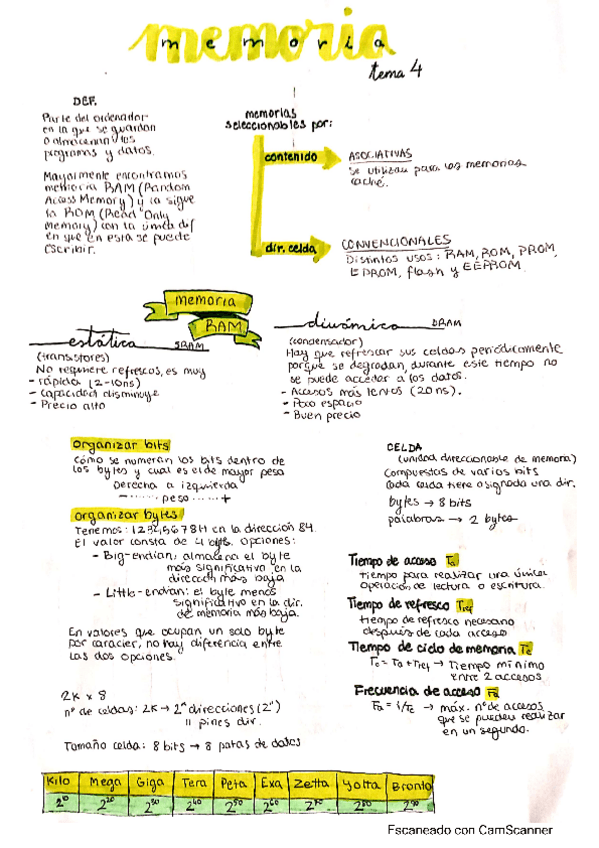 memoria
tema 4
DEF.
Parte del ordenador
en la que se guardan
o almacenan los
programas y datos.
Mayormente encontramos
memoria RAM (Random
Access Memory) y la sigue
la ROM (Read Only
Memory) con la única dif
en que en esta se puede
escribir.
memorias
seleccionables por:
contenido
ASOCIATIVAS
se utilizan para las memorias
caché.
dir. celda
CONVENCIONALES
Distintos usos: RAM, ROM, PROM,
EPROM, flash y EEPROM
memoria
RAM
estática SRAM
(transistores)
No requiere refrescos, es muy
- rápida (2-10ns)
- capacidad disminuye
- Precio alto
dinámica DRAM
(condensador)
Hay que refrescar sus celdas periódicamente
porque se degradan, durante este tiempo no
se puede acceder a los datos.
- Accesos más lentos (20 ns).
- Poco espacio
- Buen precio
organizar bits
cómo se numeran los bits dentro de
los bytes y cual es el de mayor peso
Derecha a izquierda
- ...... peso ...... +
organizar bytes
Tenemos: 12345678H en la dirección 84.
El valor consta de 4 bytes. opciones:
- Big-endian: almacena el byte
más significativo en la
dirección más baja
- Little-endian: el byte menos
significativo en la dir.
de memoria más baja.
En valores que ocupan un solo byte
por caracter, no hay diferencia entre
las dos opciones.
2K x 8
nº de celdas: 2K → 2^n direcciones (2^11)
11 pines dir.
Tamaño celda: 8 bits → 8 patas de datos
CELDA
(unidad direccionable de memoria)
Compuestas de varios bits
Cada celda tiene asignada una dir.
bytes → 8 bits
palabras → 2 bytes
Tiempo de acceso Ta
tiempo para realizar una única
operación de lectura o escritura.
Tiempo de refresco Tref
tiempo de refresco necesario
después de cada acceso
Tiempo de ciclo de memoria Tc
Tc = Ta + Tref → Tiempo mínimo
entre 2 accesos
Frecuencia de acceso Fa
Fa = 1/Tc → máx. nº de accesos
que se pueden realizar
en un segundo.
Kilo Mega Giga Tera Peta Exa Zetta Yotta Bronto
2^10 2^20 2^30 2^40 2^50 2^60 2^70 2^80 2^90
Escaneado con CamScanner